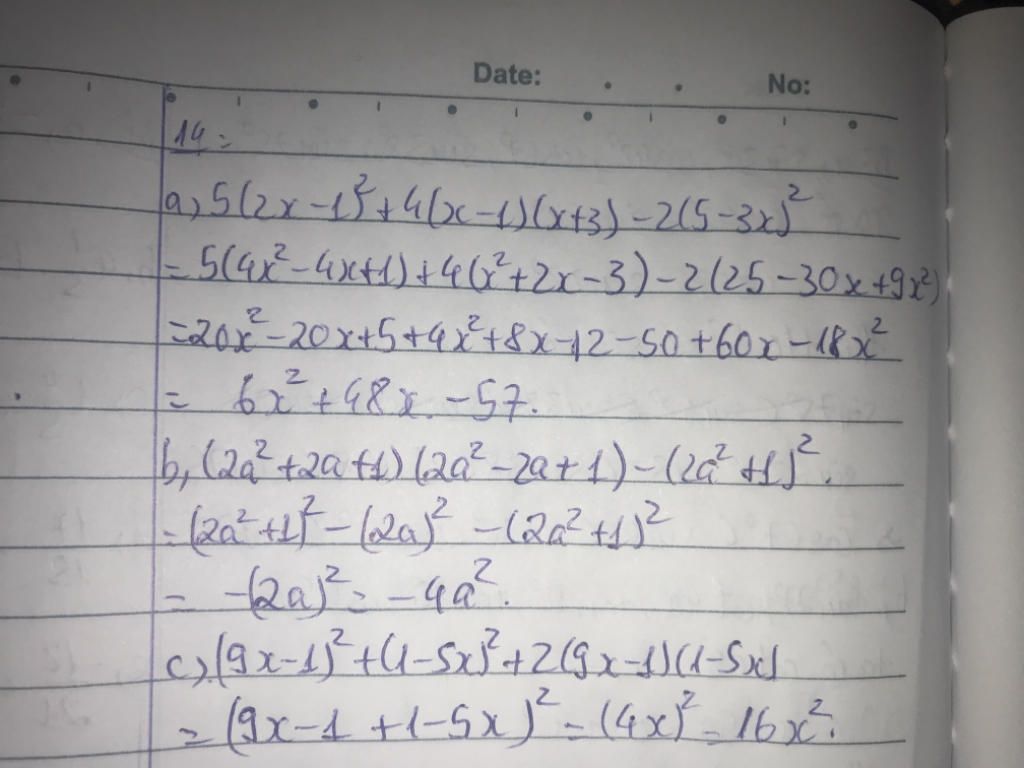 Date: No:
14:
a, 5(2x-1)² + 4(x-1)(x+3) - 2(5-3x)²
= 5(4x²-4x+1) + 4(x²+2x-3) - 2(25-30x+9x²)
= 20x²-20x+5+4x²+8x-12-50+60x-18x²
= 6x²+48x-57.
b, (2a²+2a+1)(2a²-2a+1)-(2a²+1)².
= (2a²+1)²-(2a)²-(2a²+1)²
= -(2a)² = -4a².
c, (9x-1)²+(1-5x)²+2(9x-1)(1-5x)
= (9x-1+1-5x)² = (4x)² = 16x².